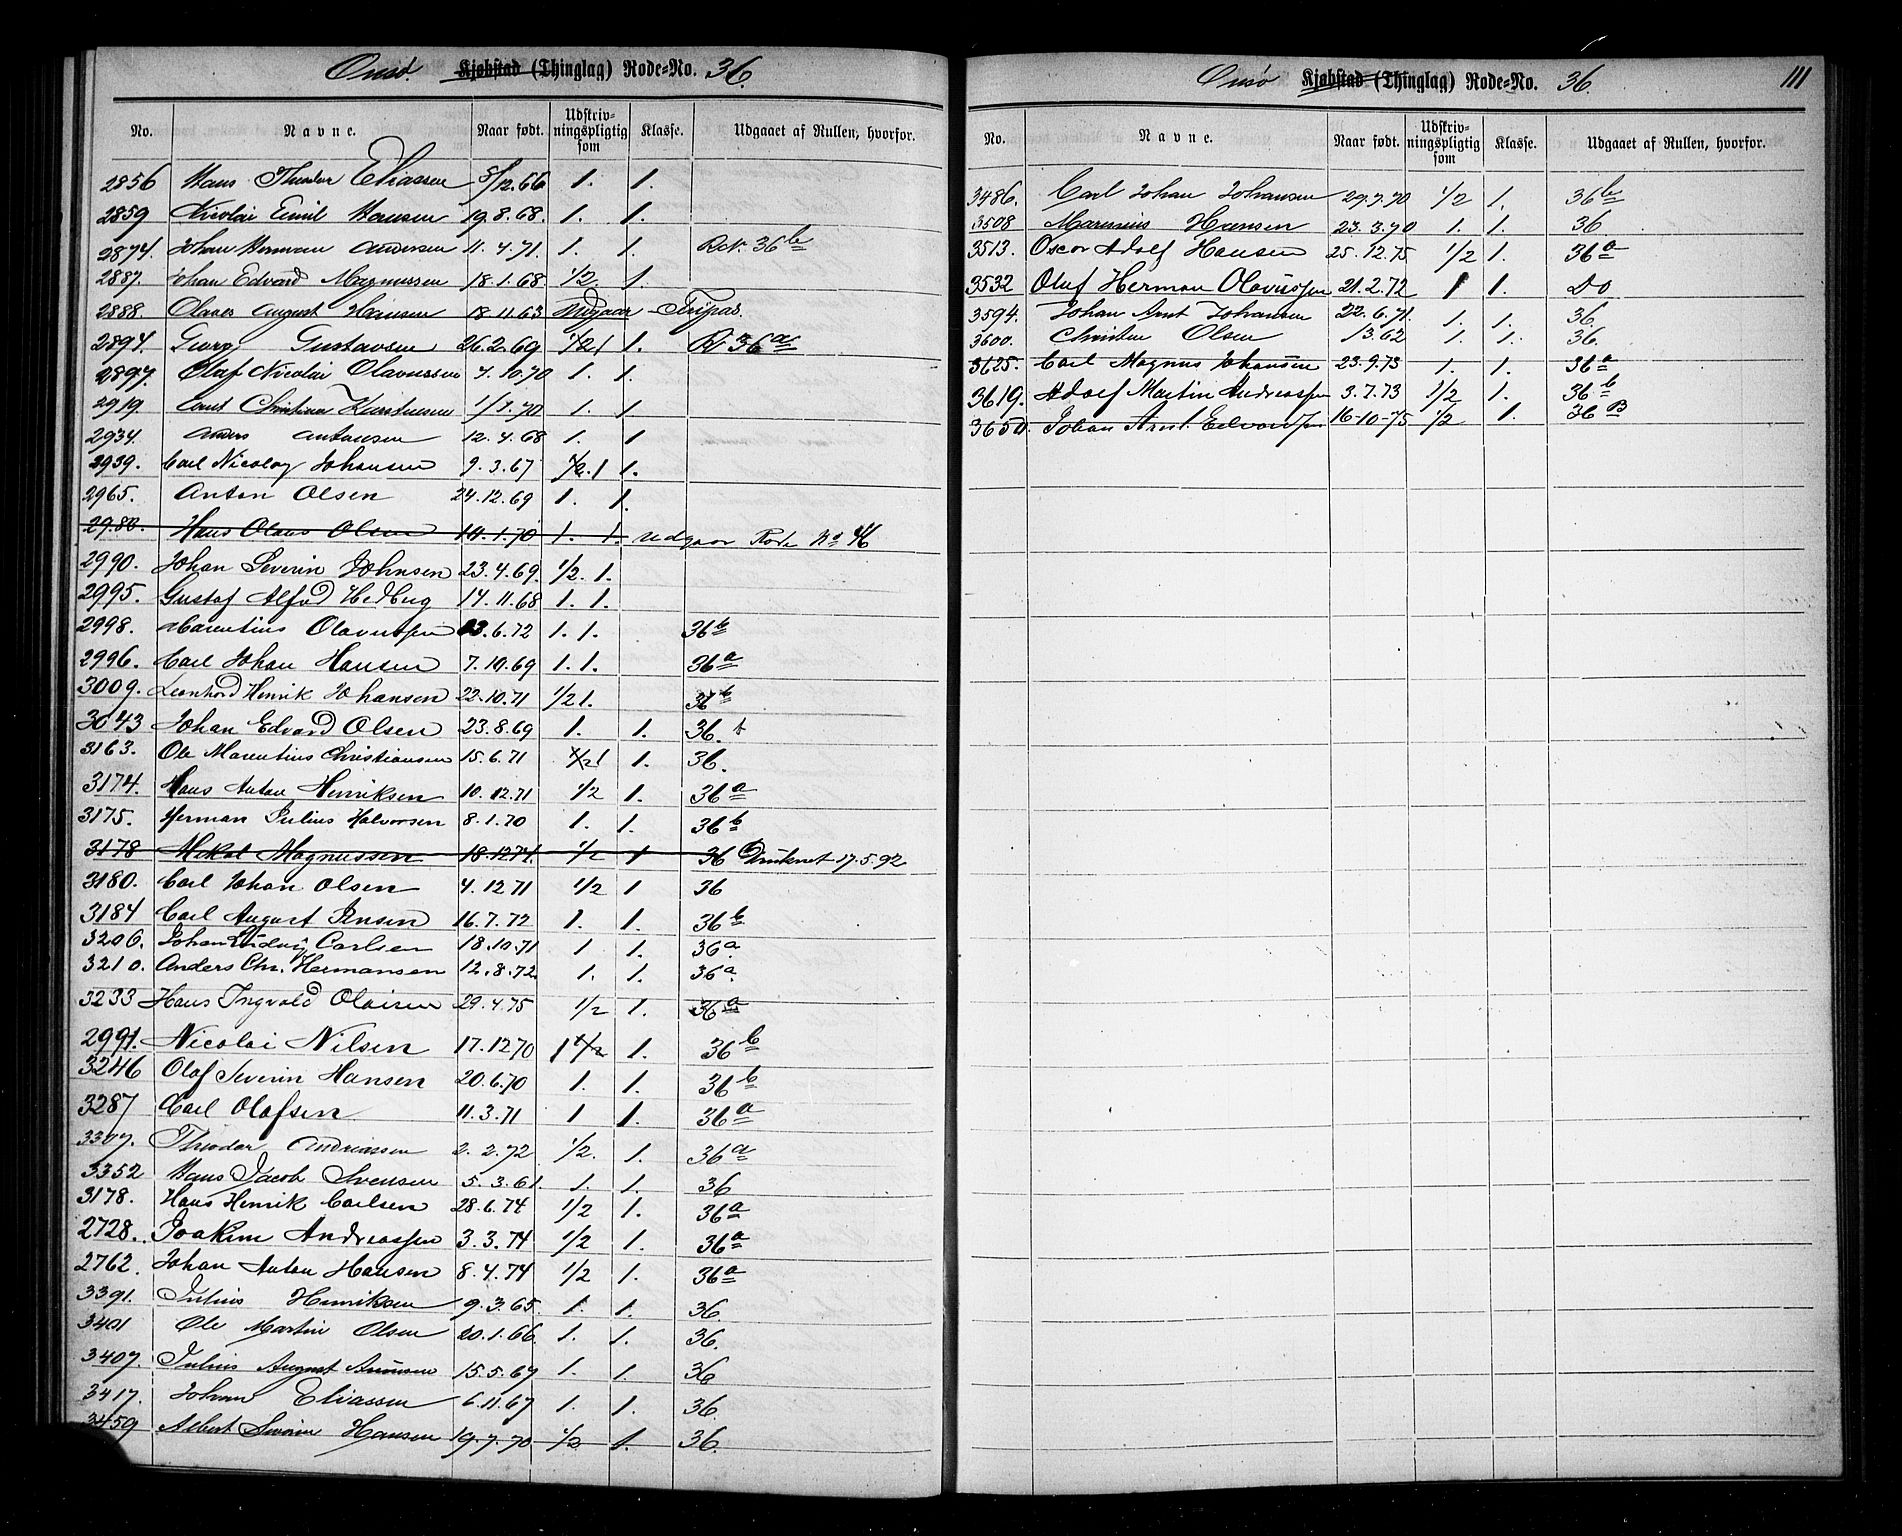 Onsø. Kjøbstad (Thinglag) Rode-No. 36.
No. Navne. Naar født. Udskriv-ningspligtig som Klasse. Udgaaet af Rullen, hvorfor.
2856 Hans Theodor Eliassen 8/12.66 1. 1.
2859 Nicolai Emil Hansen 19.8.68. 1. 1.
2874. Johan Herman Andersen 11.4.71. 1. 1. Rok. 36 b
2887. Johan Edvard Magnussen 18.1.68. 1/2. 1.
2888. Olaves August Hansen 18.11.63 Udgaar – Fripas.
2894. Georg Gustavsen 26.2.69 1/2 1 1. R 36 a
2897. Olaf Nicolai Olavessen 7.10.70 1. 1.
2919. Laurits Christian Kristensen 1/3.70 1. 1
2934. Anders Antonsen 12.4.68 1. 1
2939. Carl Nicolay Johansen 9.3.67 1/2. 1 1.
2965. Anton Olsen 24.12.69 1. 1.
2980. Hans Olaus Olsen 14.1.70 1. 1. udgaar Rode No 46
2990. Johan Severin Johnsen 23.4.69. 1/2. 1.
2995. Gustaf Alfred Hedberg 14.11.68 1. 1.
2998. Marentius Olavussen 13.6.72 1. 1. 36 b
2996. Carl Johan Hansen 7.10.69 1. 1. 36 a
3009. Leonhard Henrik Johansen 22.10.71 1/2 1. 36 b
3043 Johan Edvard Olsen 23.8.69 1. 1. 36. b
3163. Ole Marentius Christiansen 15.6.71 1/2 1 1. 36.
3174. Hans Anton Henriksen 10.12.71 1/2 1. 36 a
3175. Herman Julius Halvorsen 8.1.70 1. 1. 36 b
3178 Mikal Magnussen 18.12.74. 1/2 1 36 Druknet 17.5.92
3180. Carl Johan Olsen 4.12.71 1/2 1 36
3184 Carl August Jensen 16.7.72 1. 1. 36 b
3206. Johan Ludvig Carlsen 18.10.71 1 1. 36 a
3210. Anders Chr. Hermansen 12.8.72. 1. 1. 36 a.
3233 Hans Ingvald Olaisen 29.4.75 1/2 1. 36 a
2991. Nicolai Nilsen 17.12.70 1 1/2 1. 36 b
3246 Olaf Severin Hansen 20.6.70 1. 1. 36 b
3287 Carl Olafsen 11.3.71 1 1. 36 a
3307. Theodor Andreassen 2.2.72 1/2. 1. 36 a
3352 Hans Jacob Svensen 5.3.61. 1. 1. 36
3178. Hans Henrik Carlsen 28.6.74 1/2 1. 36 a
2728. Joakim Andreassen 3.3.74 1/2 1. 36 a
2762. Johan Anton Hansen 8.4.74 1/2 1. 36 a
3391. Julius Henriksen 9.3.65. 1. 1. 36
3401 Ole Martin Olsen 20.1.66. 1. 1. 36.
3407. Julius August 15.5.67 1. 1. 36
3417. Johan Eliassen 6.11.67 1. 1. 36
3459 Albert Severin Hansen 19.7.70 1/2 1. 36.
Onsø Kjøbstad (Thinglag) Rode-No. 36. 111
No. Navne. Naar født. Udskriv-ningspligtig som Klasse. Udgaaet af Rullen, hvorfor.
3486. Carl Johan Johansen 29.7.70 1/2 1. 36 b
3508 Marenius Hansen 23.3.70 1. 1. 36
3513. Oscar Adolf Hansen 25.12.75 1/2 1. 36 a
3532 Oluf Herman Olavussen 21.2.72 1 1. Do
3594. Johan Arnt Johansen 22.6.71. 1. 1. 36.
3600. Christen Olsen 1 3.62 1. 1. 36.
3625. Carl Magnus Johansen 23.9.73 1. 1. 36 a
3619. Adolf Martin Andreassen 3.7.73 1/2 1. 36 b
3650. Johan Arnt Edvardsen 16-10-75 1/2 1. 36 B